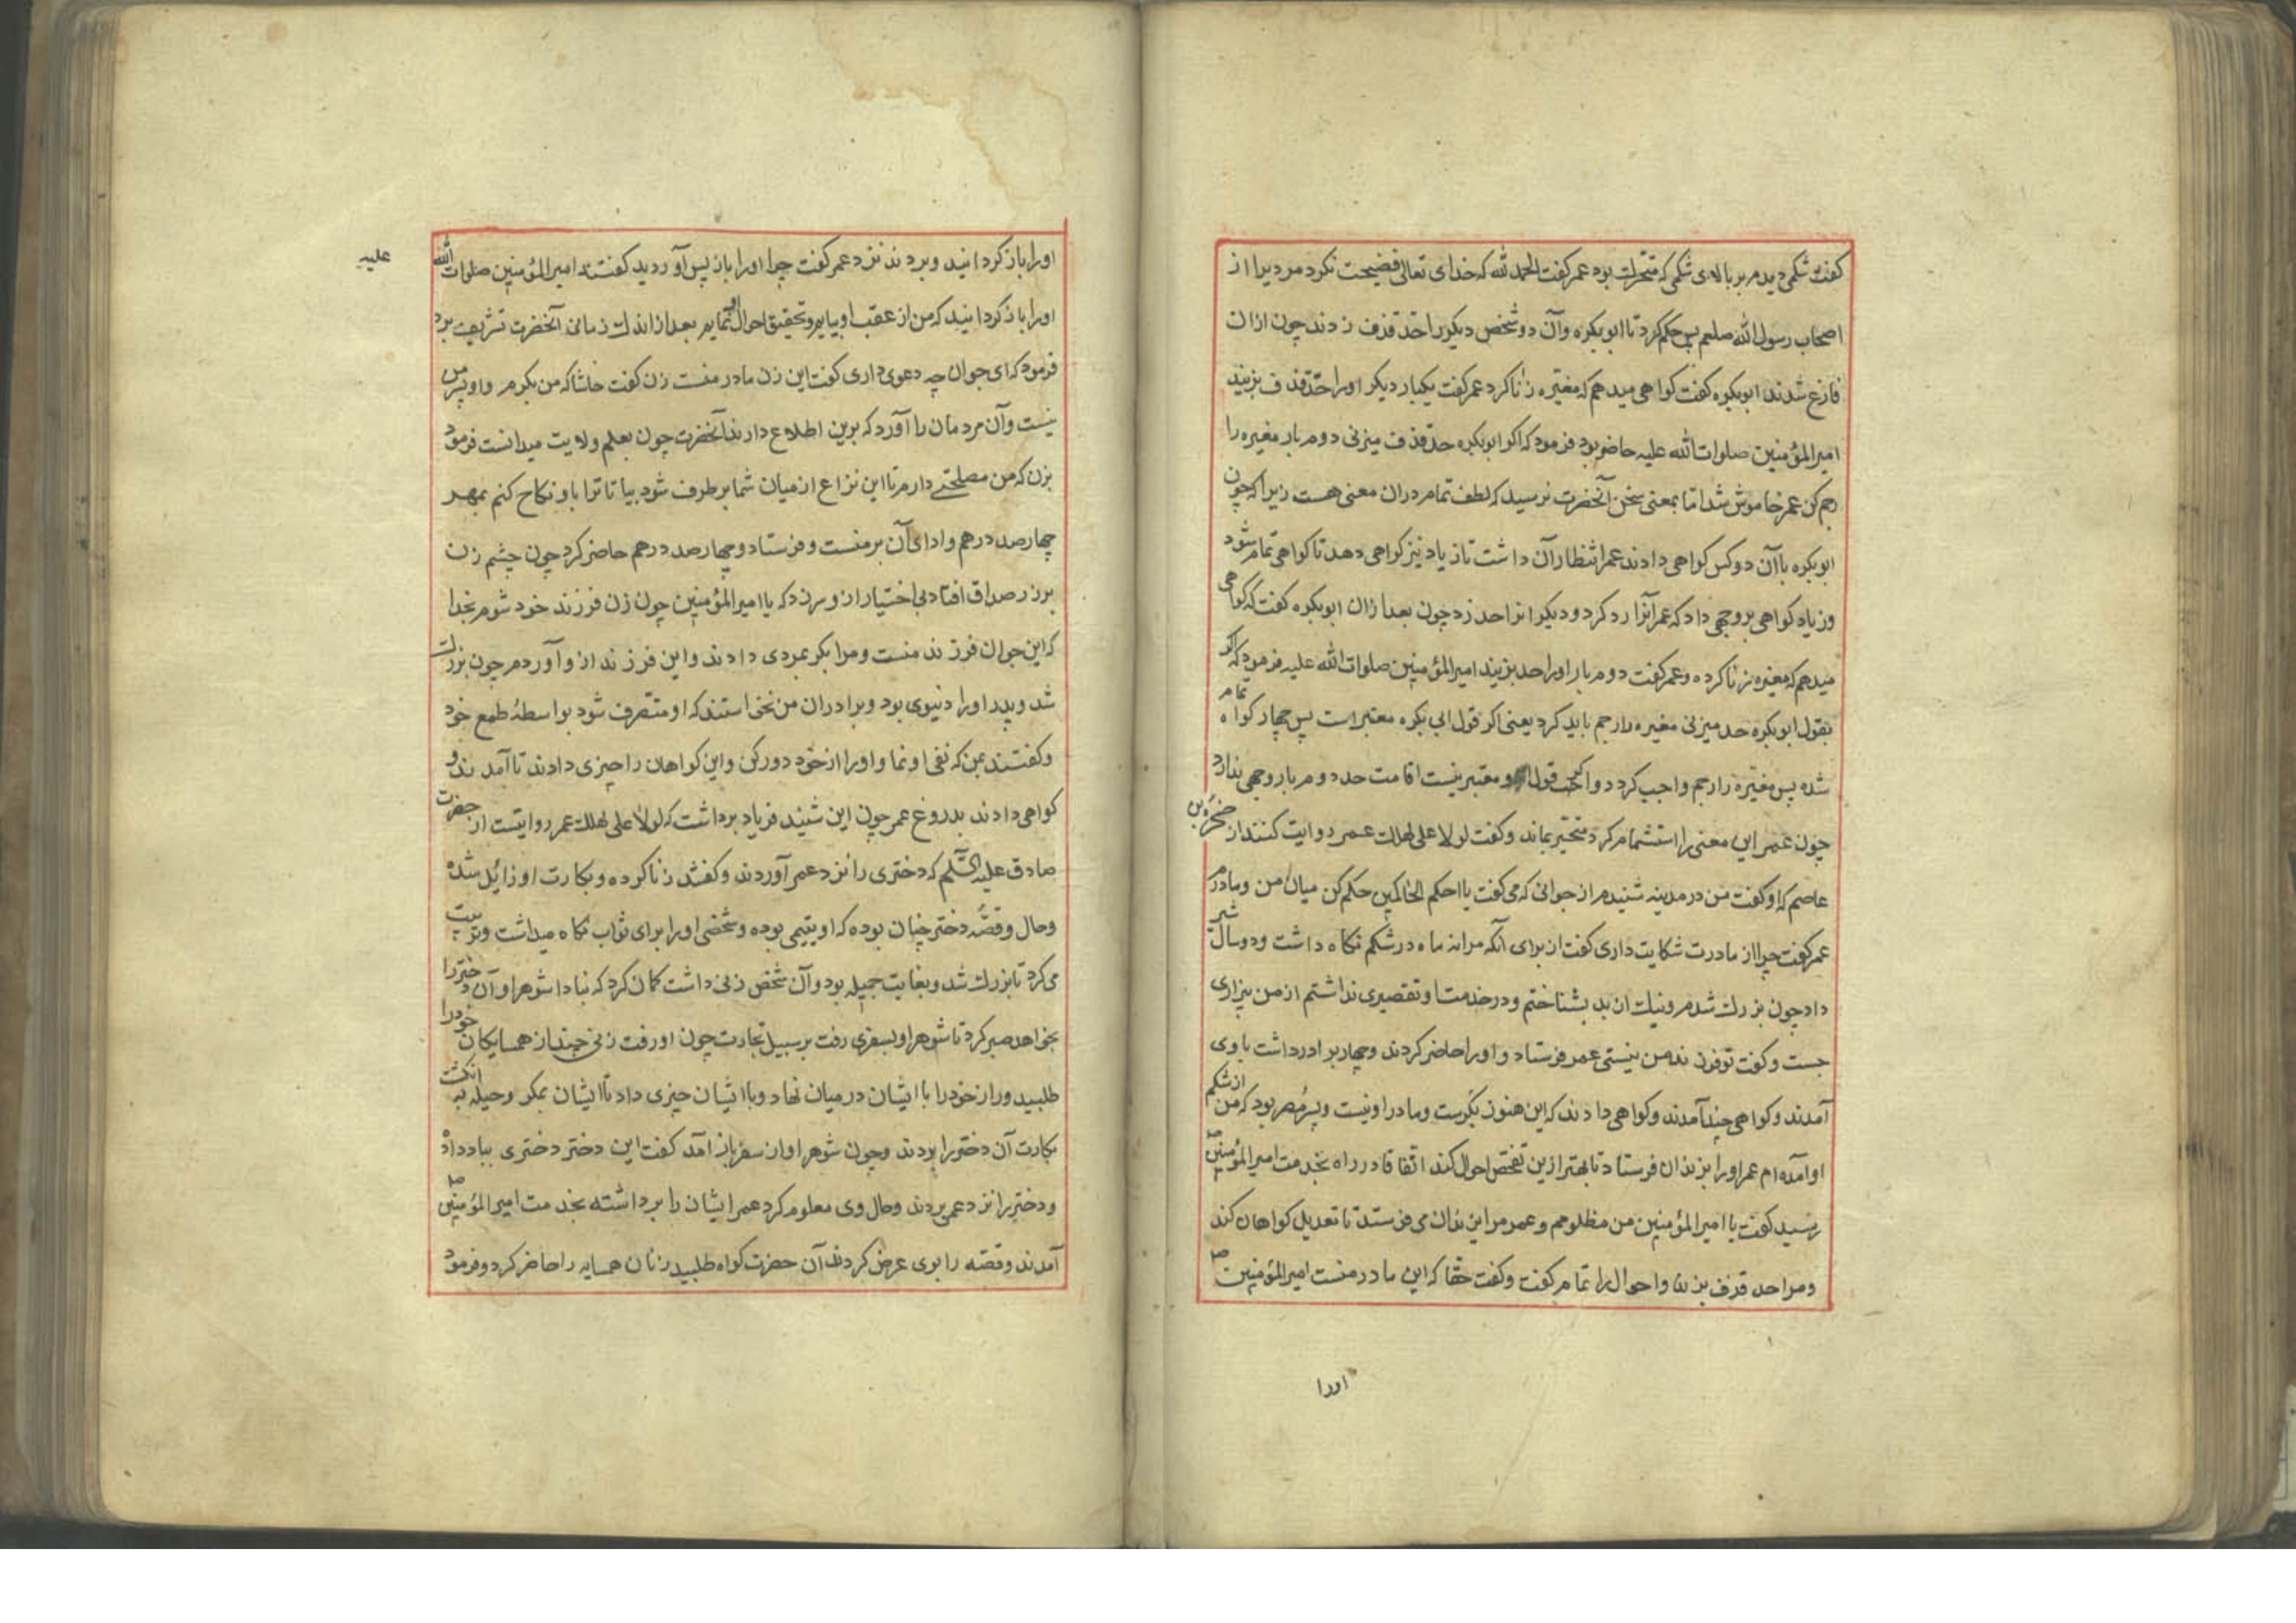 کفت شکمی دیدم بر بالای شکمی که متحرک بود عمر کفت الحمد لله که خدای تعالی فضیحت نکرد مردیرا از
اصحاب رسول الله صلعم پس حکم کرد تا ابو بکره وآن دو شخص دیکر را حد قذف زدند چون ازان
فارغ شدند ابو بکره کفت کواهی میدهم که مغیره زنا کرد عمر کفت یکبار دیکر اورا حد قذف بزنید
امیر المؤمنین صلوات الله علیه حاضر بود فرمود که اکر ابو بکره حد قذف میزنی دوم بار مغیره را
رجم کن عمر خاموش شد اما بمعنی سخن آنحضرت نرسید که لطف تمام دران معنی هست زیرا که چون
ابو بکره با آن دو کس کواهی دادند عمر انتظار آن داشت تا زیاد نیز کواهی دهد تا کواهی تمام شود
وزیاد کواهی بر وجهی داد که عمر آنرا رد کرد و دیکرانرا حد زد چون بعد ازان ابو بکره کفت که کواهی
میدهم که مغیره زنا کرده وعمر کفت دوم بار اورا حد بزنید امیر المؤمنین صلوات الله علیه فرمود که اکر
بقول ابو بکره حد میزنی مغیره را رجم باید کرد یعنی اکر قول ابی بکره معتبر است پس چهار کواه تمام
شده پس مغیره را رجم واجب کردد واکر قول او معتبر نیست اقامت حد دوم بار وجهی ندارد
چون عمر این معنی را استشمام کرد متحیر بماند وکفت لولا علی لهلک عمر روایت کنند از ضمرة بن
عاصم که او کفت من در مدینه شنیدم از جوانی که می کفت یا احکم الحاکمین حکم کن میان من ومادرم
عمر کفت چرا از مادرت شکایت داری کفت از برای آنکه مرا نه ماه در شکم نکاه داشت ودو سال شیر
داد چون بزرک شدم ونیک از بد بشناختم ودر خدمت او تقصیری نداشتم از من بیزاری
جست وکفت تو فرزند من نیستی عمر فرستاد واورا حاضر کردند وچهار برادر داشت با وی
آمدند وکواهی چند آمدند وکواهی دادند که این هنوز بکرست ومادر او نیست وپسر مصر بود که من از شکم
او آمده ام عمر اورا بزندان فرستاد تا بهتر ازین تفحص احوال کند اتفاقا در راه بخدمت امیر المؤمنین ص
رسید کفت یا امیر المؤمنین من مظلومم وعمر مرا بزندان می فرستد تا تعدیل کواهان کند
ومرا حد قذف بزند واحوال را تمام کفت وکفت حقا که این مادر منست امیر المؤمنین ص
اورا
اورا باز کردانید وبردند نزد عمر کفت چرا اورا باز پس آوردید کفتند امیر المؤمنین صلوات الله
علیه
اورا باز کردانید که من از عقب او بیایم وتحقیق احوال او نمایم بعد از اندک زمانی آنحضرت تشریف برد
فرمود که ای جوان چه دعوی داری کفت این زن مادر منست زن کفت حاشا که من بکرم واو پسر من
نیست وآن مردمان را آورد که برین اطلاع دارند آنحضرت چون بعلم ولایت میدانست فرمود
بزن که من مصلحتی دارم تا این نزاع از میان شما بر طرف شود بیا تا ترا باو نکاح کنم بمهر
چهار صد درهم وادای آن بر منست وفرستاد وچهار صد درهم حاضر کرد چون چشم زن
بر زر صداق افتاد بی اختیار ازو سر زد که یا امیر المؤمنین چون زن فرزند خود شوم بخدا
که این جوان فرزند منست ومرا بکر بمردی دادند واین فرزند ازو آوردم چون بزرک
شد وپدر اورا دنیوی بود وبرادران من نخواستند که او متصرف شود بواسطهٔ طمع خود
وکفتند بمن که نفی او نما واورا از خود دور کن واین کواهان را چیزی دادند تا آمدند و
کواهی دادند بدروغ عمر چون این شنید فریاد برداشت که لولا علی لهلک عمر روایتست از حضرت
صادق علیه السلم که دختری را نزد عمر آوردند وکفتند زنا کرده وبکارت او زائل شده
وحال وقصهٔ دختر چنان بوده که او یتیمی بوده وشخصی اورا برای ثواب نکاه میداشت وتربیت
می کرد تا بزرک شد وبغایت جمیله بود وآن شخص زنی داشت کمان کرد که مبادا شوهر او آن دختر را
بخواهد صبر کرد تا شوهر او بسفری رفت بر سبیل تجارت چون او رفت زنی چند از همسایکان خود را
طلبید وراز خود را با ایشان در میان نهاد وبا ایشان چیزی داد تا ایشان بمکر وحیله به انکشت
بکارت آن دختر را بردند وچون شوهر او از سفر باز آمد کفت این دختر دختری بباد داد
ودختر را نزد عمر بردند وحال وی معلوم کرد عمر ایشان را برداشته بخدمت امیر المؤمنین ص
آمدند وقصه را بوی عرض کردند آن حضرت کواه طلبید زنان همسایه را حاضر کرد وفرمود